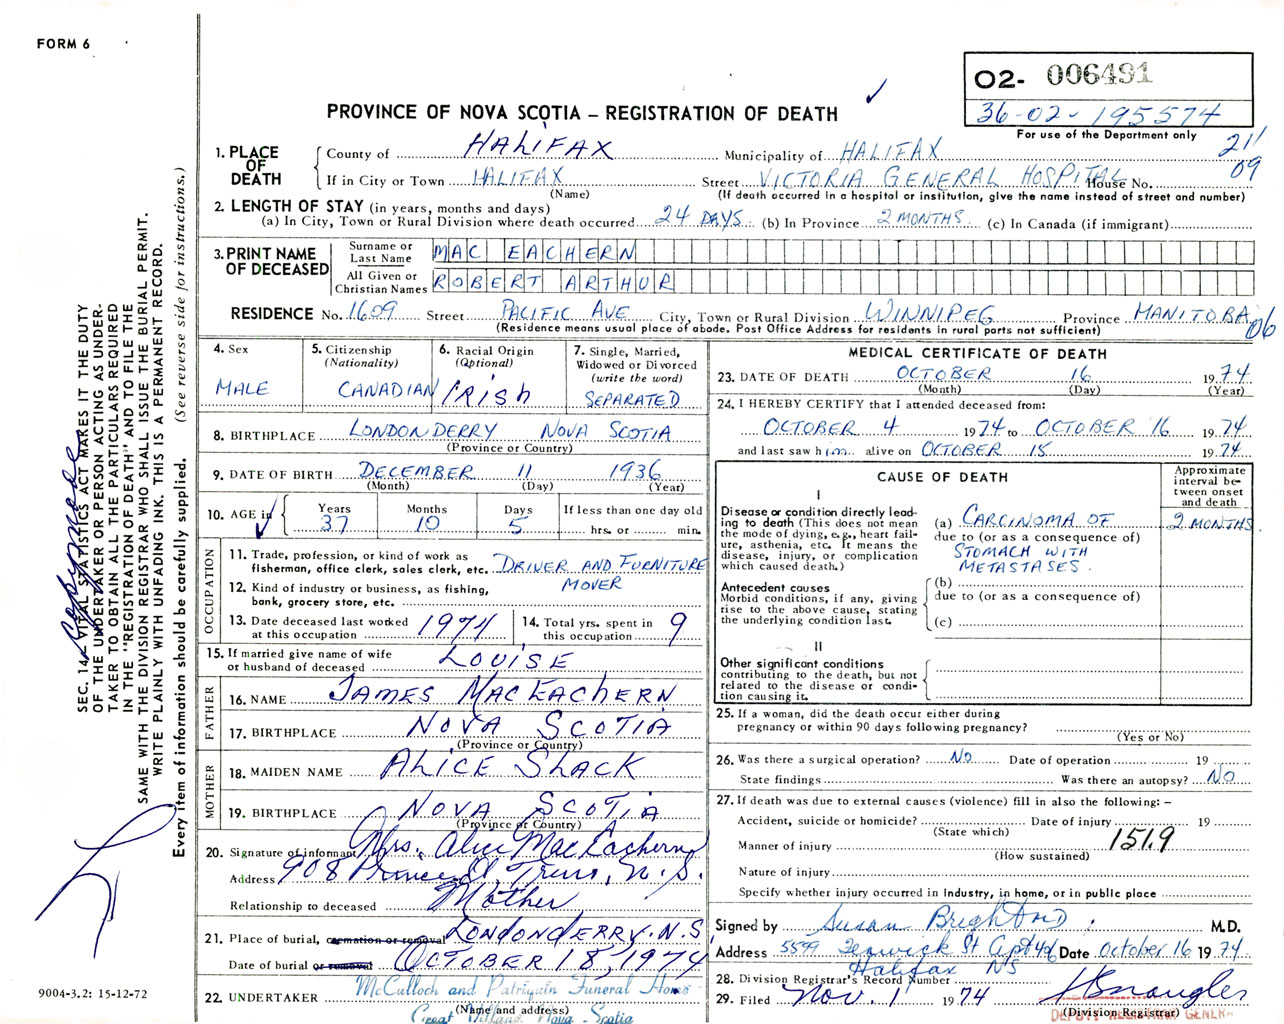 FORM 6
O2- 006491
36-02-195574
For use of the Department only
PROVINCE OF NOVA SCOTIA – REGISTRATION OF DEATH
21/
09
1. PLACE OF DEATH
County of HALIFAX Municipality of HALIFAX
If in City or Town HALIFAX Street VICTORIA GENERAL HOSPITAL House No.
(Name) (If death occurred in a hospital or institution, give the name instead of street and number)
2. LENGTH OF STAY (in years, months and days)
(a) In City, Town or Rural Division where death occurred 24 DAYS (b) In Province 2 MONTHS (c) In Canada (if immigrant)
3. PRINT NAME OF DECEASED
Surname or Last Name MAC EACHERN
All Given or Christian Names ROBERT ARTHUR
RESIDENCE No. 1609 Street PACIFIC AVE City, Town or Rural Division WINNIPEG Province MANITOBA
(Residence means usual place of abode. Post Office Address for residents in rural parts not sufficient)
06
4. Sex
MALE
5. Citizenship
(Nationality)
CANADIAN
6. Racial Origin
(Optional)
IRISH
7. Single, Married,
Widowed or Divorced
(write the word)
SEPARATED
8. BIRTHPLACE LONDONDERRY NOVA SCOTIA
(Province or Country)
9. DATE OF BIRTH DECEMBER 11 1936
(Month) (Day) (Year)
10. AGE in
Years Months Days If less than one day old
37 10 5 hrs. or min.
OCCUPATION
11. Trade, profession, or kind of work as
fisherman, office clerk, sales clerk, etc. DRIVER AND FURNITURE
MOVER
12. Kind of industry or business, as fishing,
bank, grocery store, etc.
13. Date deceased last worked
at this occupation 1974
14. Total yrs. spent in
this occupation 9
15. If married give name of wife
or husband of deceased LOUISE
FATHER
16. NAME JAMES MACEACHERN
17. BIRTHPLACE NOVA SCOTIA
(Province or Country)
MOTHER
18. MAIDEN NAME ALICE SLACK
19. BIRTHPLACE NOVA SCOTIA
(Province or Country)
20. Signature of informant Mrs. Alice A MacEachern
Address 908 Prince St Truro, N.S.
Relationship to deceased Mother
21. Place of burial, cremation or removal LONDONDERRY. N.S.
Date of burial or removal OCTOBER 18, 1974
22. UNDERTAKER McCulloch and Patriquin Funeral Home
(Name and address)
Great Village, Nova Scotia
MEDICAL CERTIFICATE OF DEATH
23. DATE OF DEATH OCTOBER 16 19 74
(Month) (Day) (Year)
24. I HEREBY CERTIFY that I attended deceased from:
OCTOBER 4 19 74 to OCTOBER 16 19 74
and last saw him alive on OCTOBER 15 19 74
CAUSE OF DEATH
Approximate
interval be-
tween onset
and death
I
Disease or condition directly lead-
ing to death (This does not mean
the mode of dying, e.g., heart fail-
ure, asthenia, etc. It means the
disease, injury, or complication
which caused death.)
(a) CARCINOMA OF 2 MONTHS.
due to (or as a consequence of)
STOMACH WITH
METASTASES.
Antecedent causes
Morbid conditions, if any, giving
rise to the above cause, stating
the underlying condition last.
(b)
due to (or as a consequence of)
(c)
II
Other significant conditions
contributing to the death, but not
related to the disease or condi-
tion causing it.
25. If a woman, did the death occur either during
pregnancy or within 90 days following pregnancy?
(Yes or No)
26. Was there a surgical operation? No Date of operation 19
State findings Was there an autopsy? No
27. If death was due to external causes (violence) fill in also the following: –
Accident, suicide or homicide? Date of injury 19
(State which)
151.9
Manner of injury
(How sustained)
Nature of injury
Specify whether injury occurred in industry, in home, or in public place
Signed by Susan Brighton M.D.
Address 5599 Fenwick St Apt 46 Date October 16 19 74
Halifax NS
28. Division Registrar's Record Number
29. Filed Nov. 1 19 74
(Division Registrar)
DEPUTY REGISTRAR GENERAL
SEC. 14 – VITAL STATISTICS ACT MAKES IT THE DUTY
OF THE UNDERTAKER OR PERSON ACTING AS UNDER-
TAKER TO OBTAIN ALL THE PARTICULARS REQUIRED
IN THE "REGISTRATION OF DEATH" AND TO FILE THE
SAME WITH THE DIVISION REGISTRAR WHO SHALL ISSUE THE BURIAL PERMIT.
WRITE PLAINLY WITH UNFADING INK. THIS IS A PERMANENT RECORD.
Every item of information should be carefully supplied. (See reverse side for instructions.)
9004-3.2: 15-12-72